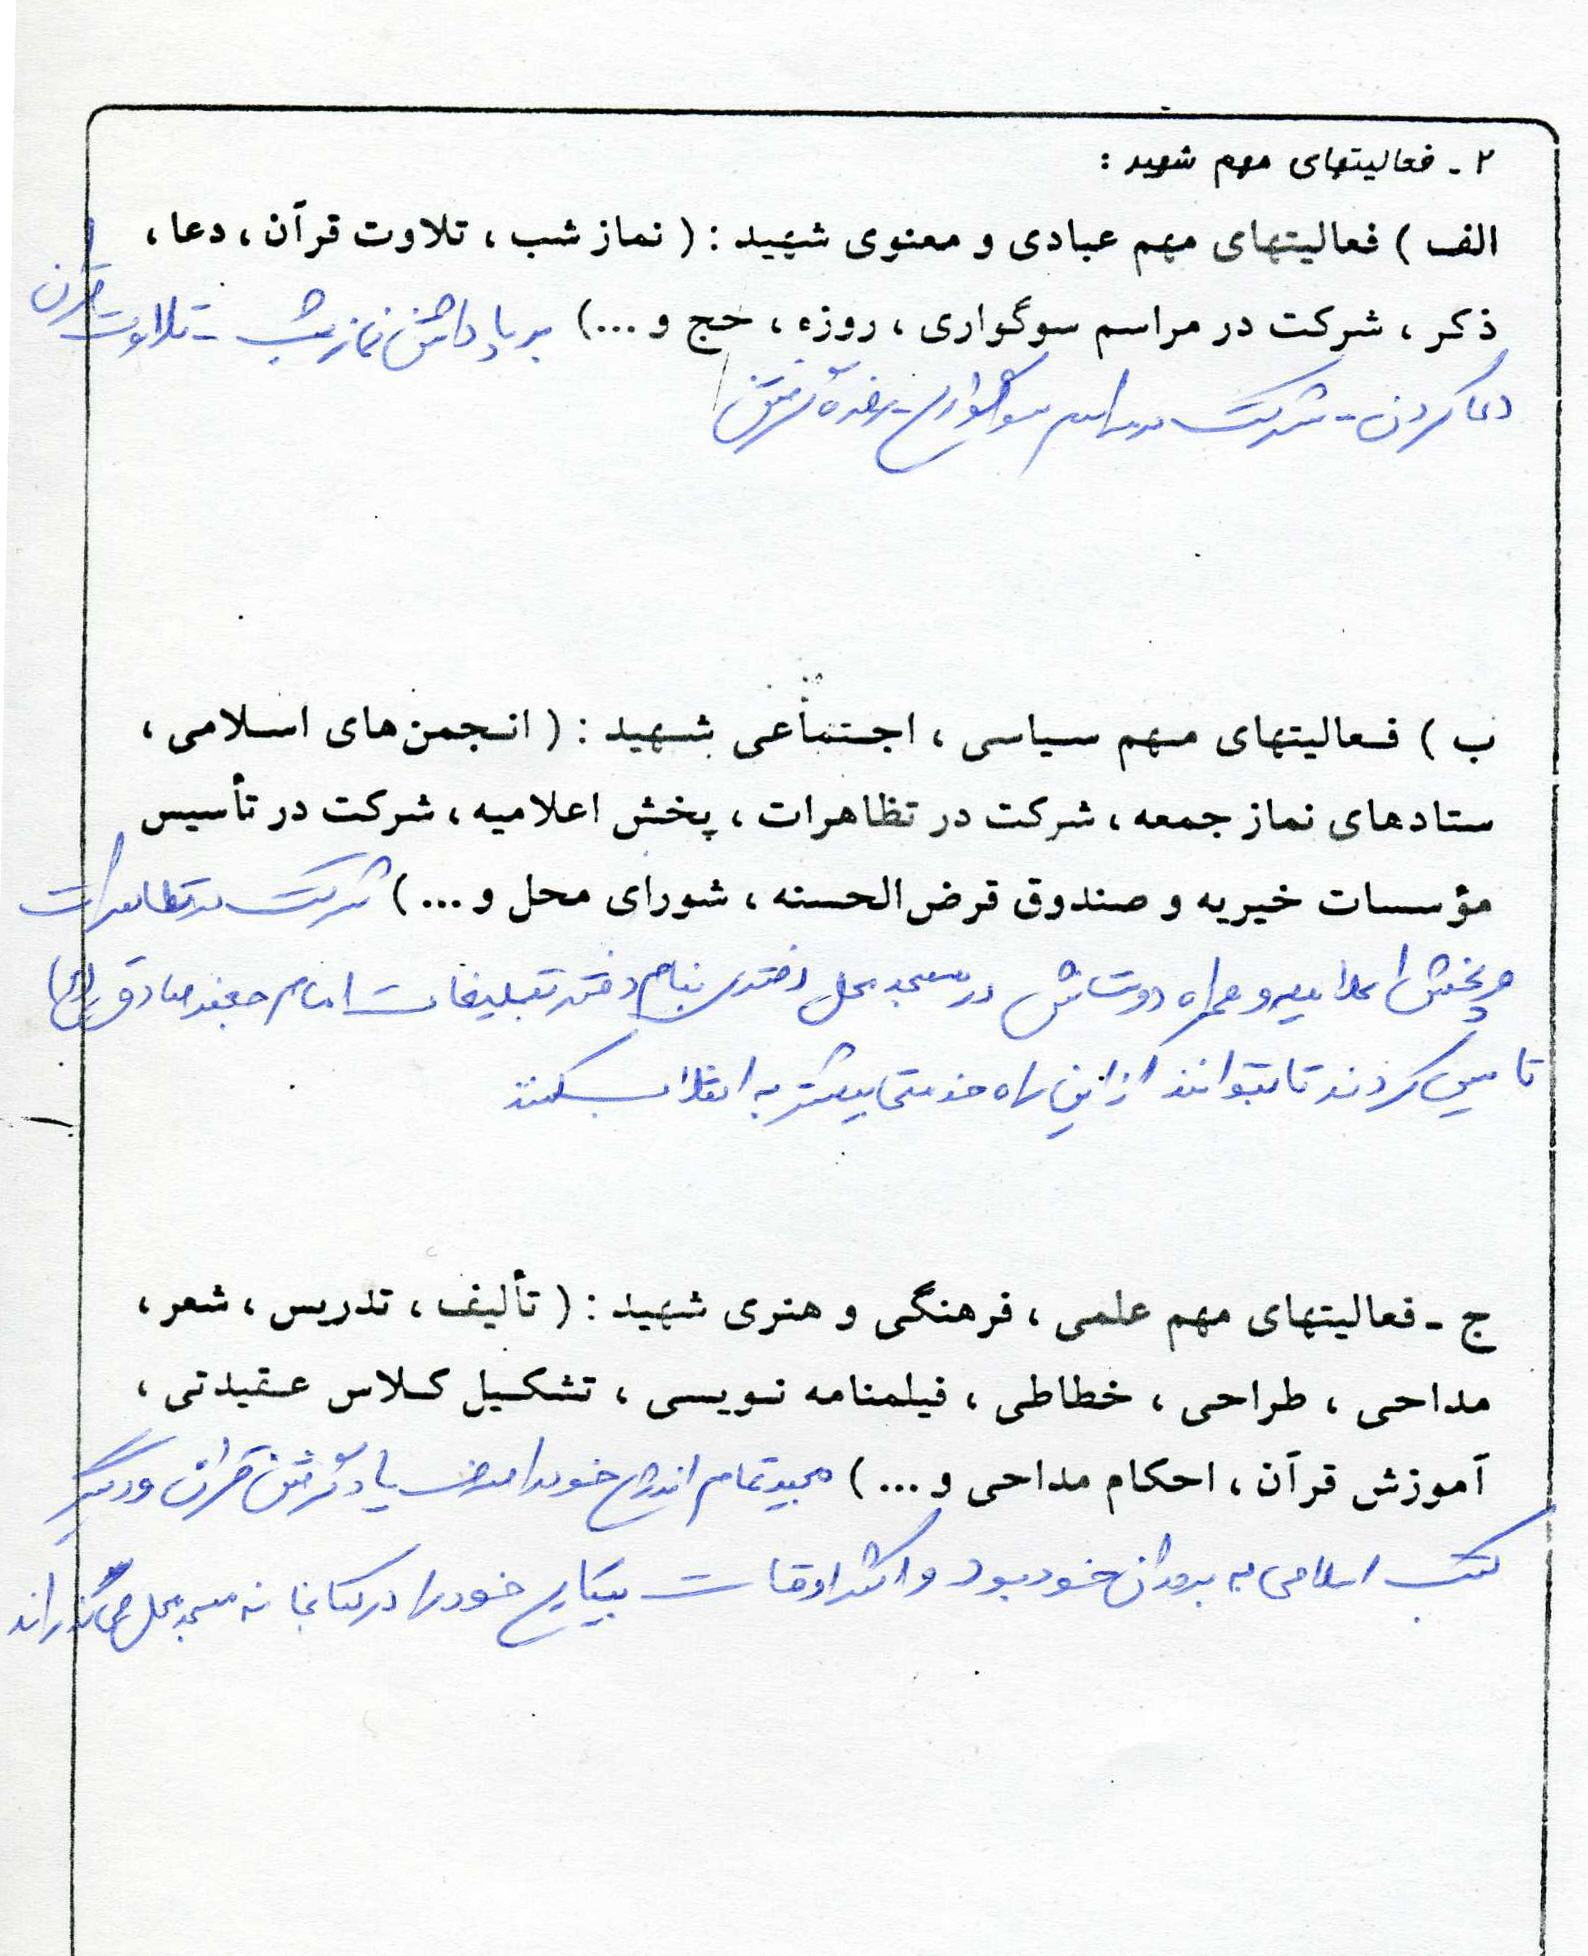 ۲ - فعالیتهای مهم شهید :
الف ) فعالیتهای مهم عبادی و معنوی شهید : ( نماز شب ، تلاوت قرآن ، دعا ،
ذکر ، شرکت در مراسم سوگواری ، روزه ، حج و ... ) برپا داشتن نماز شب - تلاوت قرآن
دعا کردن - شرکت در مراسم سوگواری - روزه گرفتن
ب ) فعالیتهای مهم سیاسی ، اجتماعی شهید : ( انجمن‌های اسلامی ،
ستادهای نماز جمعه ، شرکت در تظاهرات ، پخش اعلامیه ، شرکت در تأسیس
مؤسسات خیریه و صندوق قرض‌الحسنه ، شورای محل و ... ) شرکت در تظاهرات
و پخش اعلامیه و همراه دوستانش در مسجد محل دفتری بنام دفتر تبلیغات امام جعفر صادق (ع) را
تاسیس کردند تا بتوانند از این راه خدمتی بیشتر به انقلاب بکنند
ج - فعالیتهای مهم علمی ، فرهنگی و هنری شهید : ( تألیف ، تدریس ، شعر ،
مداحی ، طراحی ، خطاطی ، فیلمنامه نویسی ، تشکیل کلاس عقیدتی ،
آموزش قرآن ، احکام مداحی و ... ) مجید تمام انرژی خود را صرف یاد گرفتن قرآن و دیگر
کتب اسلامی به برادران خود بود و اکثر اوقات بیکاری خود را در کتابخانه مسجد محل می گذراند